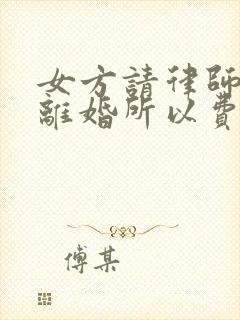 女方請律師
離婚所以費
傅某